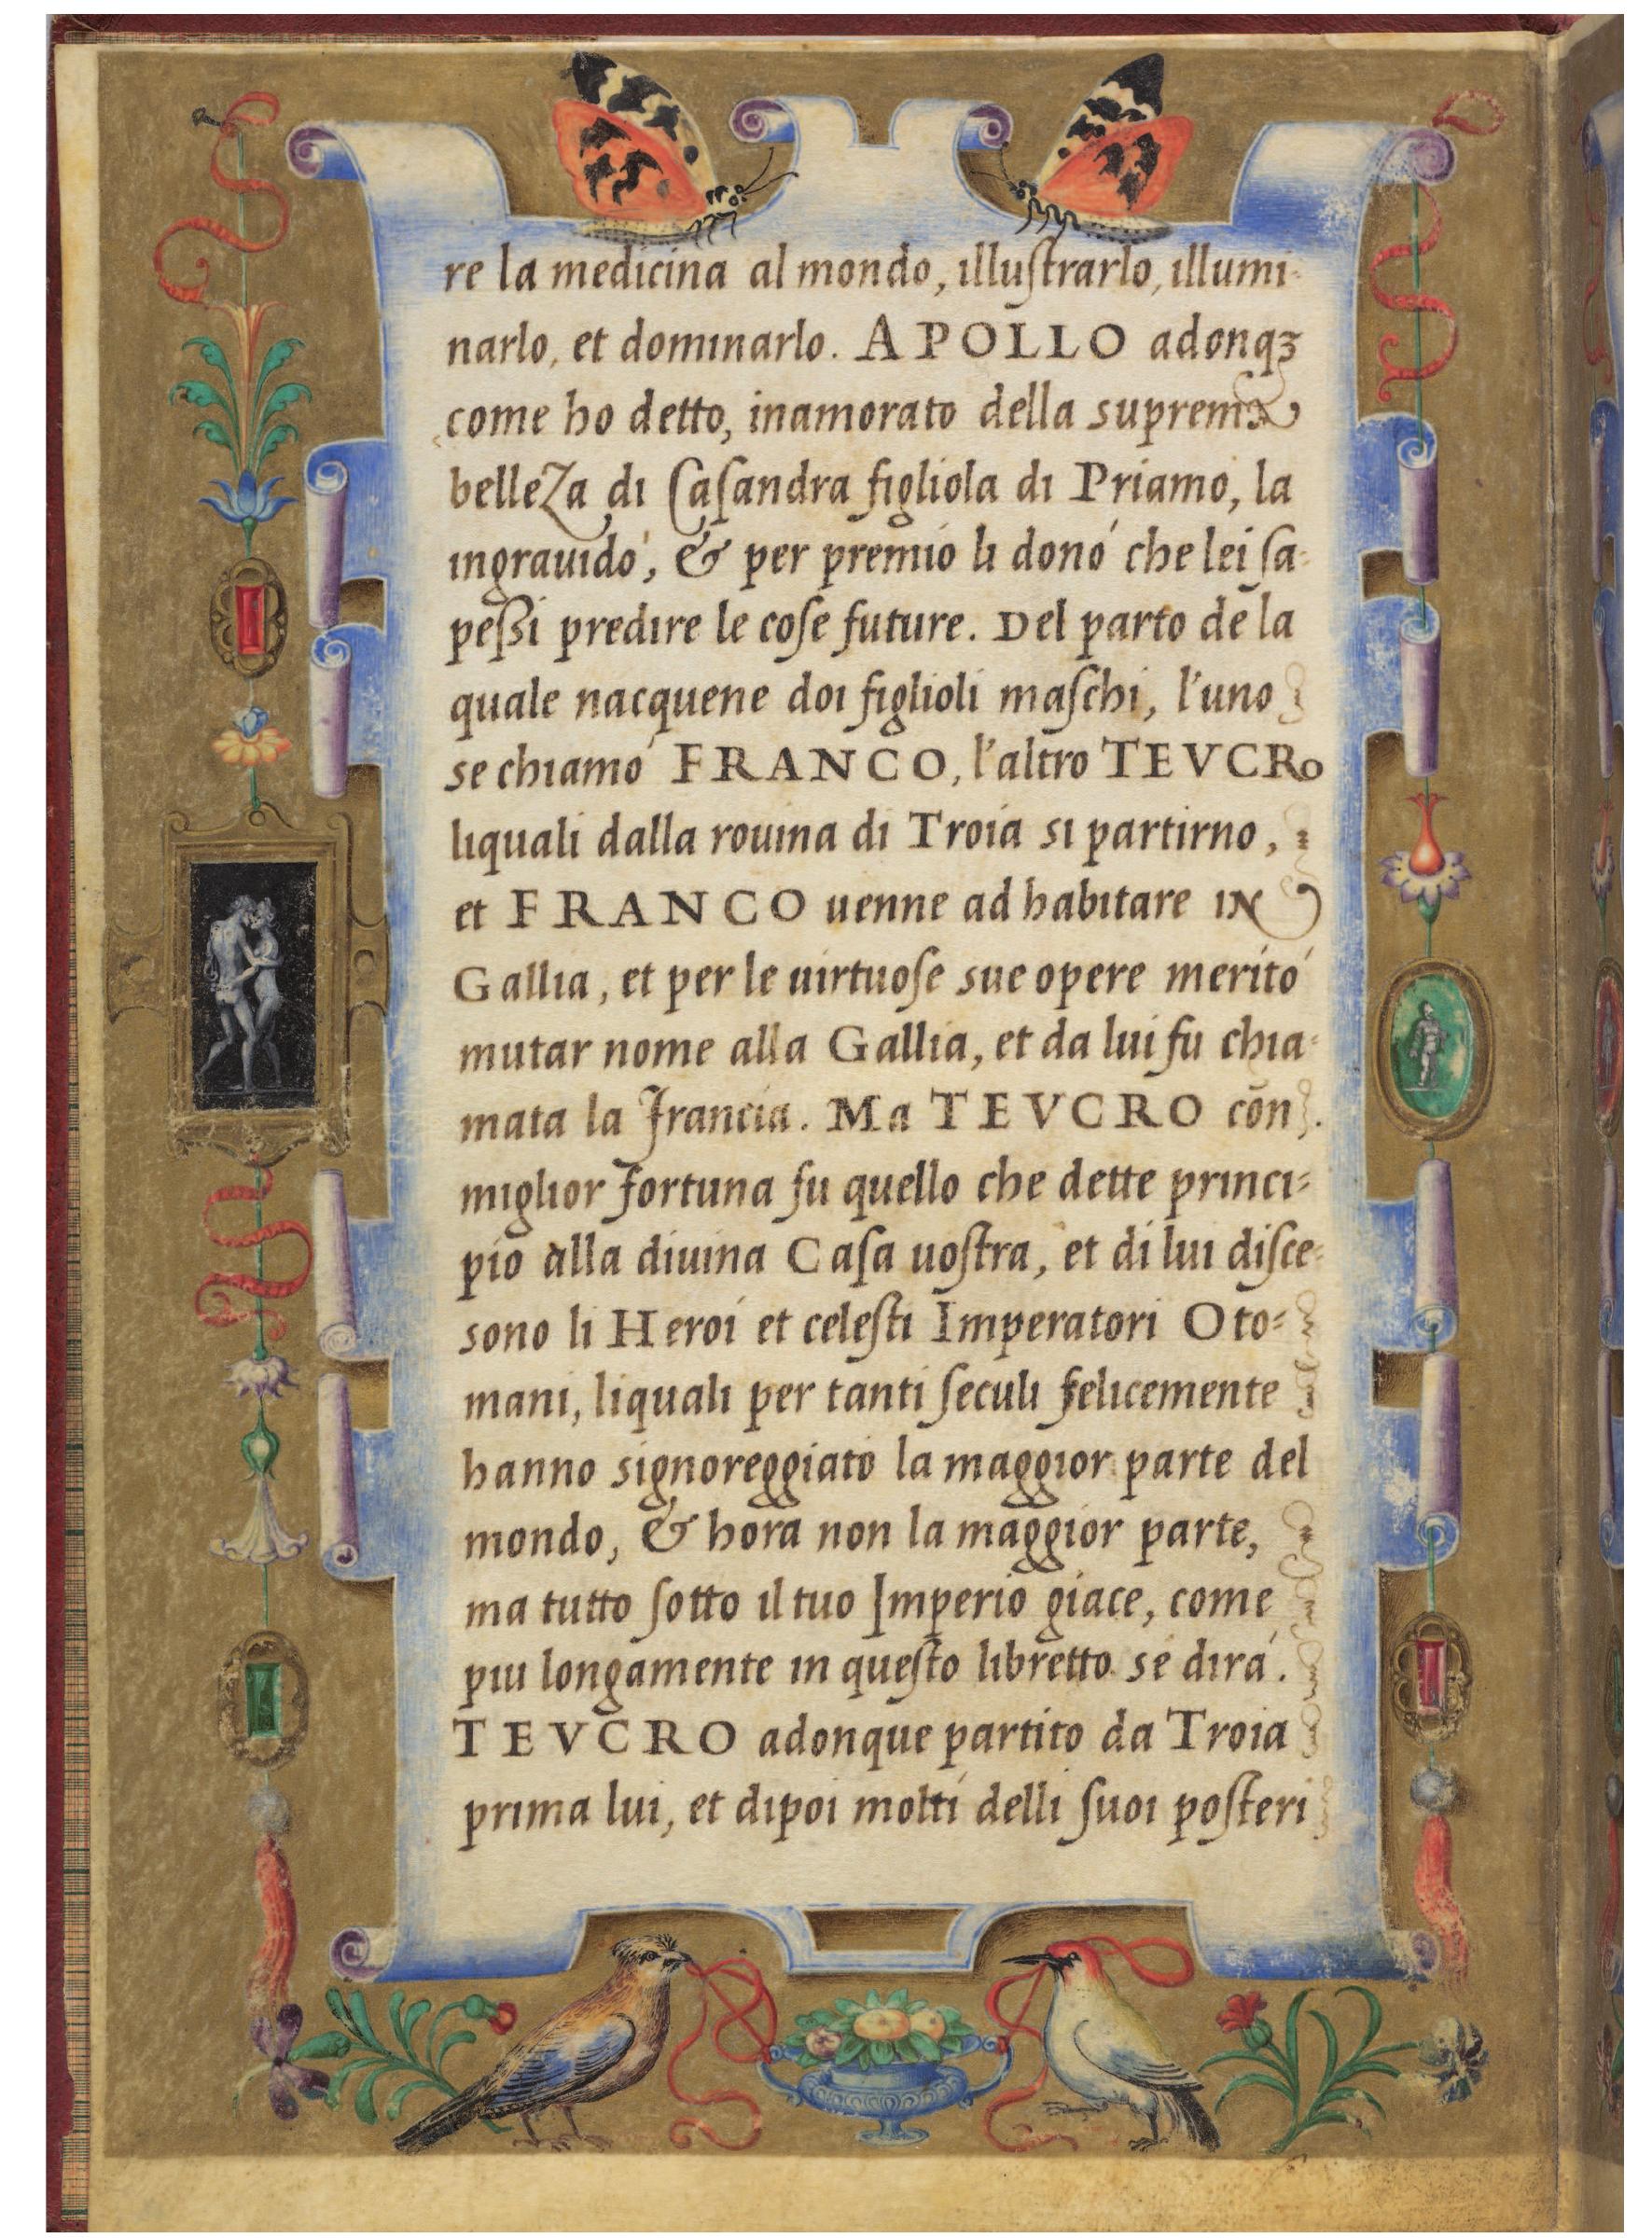 re la medicina al mondo, illuſtrarlo, illumi-
narlo, et dominarlo. APOLLO adonqꝫ
come ho detto, inamorato della suprema
belleza di Caſandra figliola di Priamo, la
ingrauidó, & per premio li donó che lei ſa-
peſſi predire le coſe future. Del parto de la
quale nacquene doi figlioli maſchi, l'uno
se chiamó FRANCO, l'altro TEVCRo
liquali dalla rouina di Troia si partirno,
et FRANCO uenne ad habitare IN
Gallia, et per le uirtuoſe sue opere meritó
mutar nome alla Gallia, et da lui fu chia-
mata la Francia. Ma TEVCRO cōn
miglior fortuna fu quello che dette princi-
pio alla diuina Caſa uoſtra, et di lui diſce-
sono li Heroi et celeſti Imperatori Oto-
mani, liquali per tanti ſeculi felicemente
hanno signoreggiato la maggior parte del
mondo, & hora non la maggior parte,
ma tutto ſotto il tuo Imperio giace, come
piu longamente in queſto libretto se dirá.
TEVCRO adonque partito da Troia
prima lui, et dipoi molti delli ſuoi poſteri